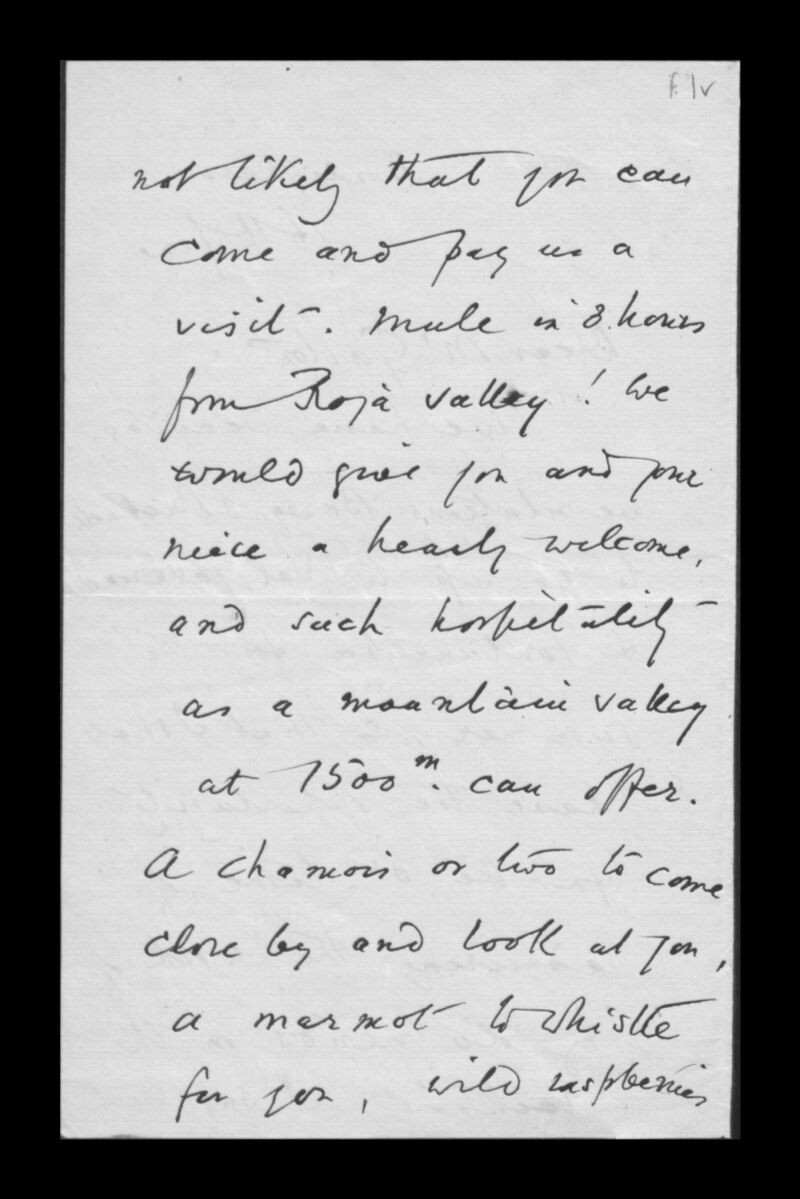 F.1v
not likely that you can
come and pay us a
visit. Mule in 8 hours
from Roja valley! We
would give you and your
neice a hearty welcome,
and such hospitality
as a mountain valley
at 1500m. can offer.
A chamois or two to come
close by and look at you,
a marmot to whistle
for you, wild raspberries